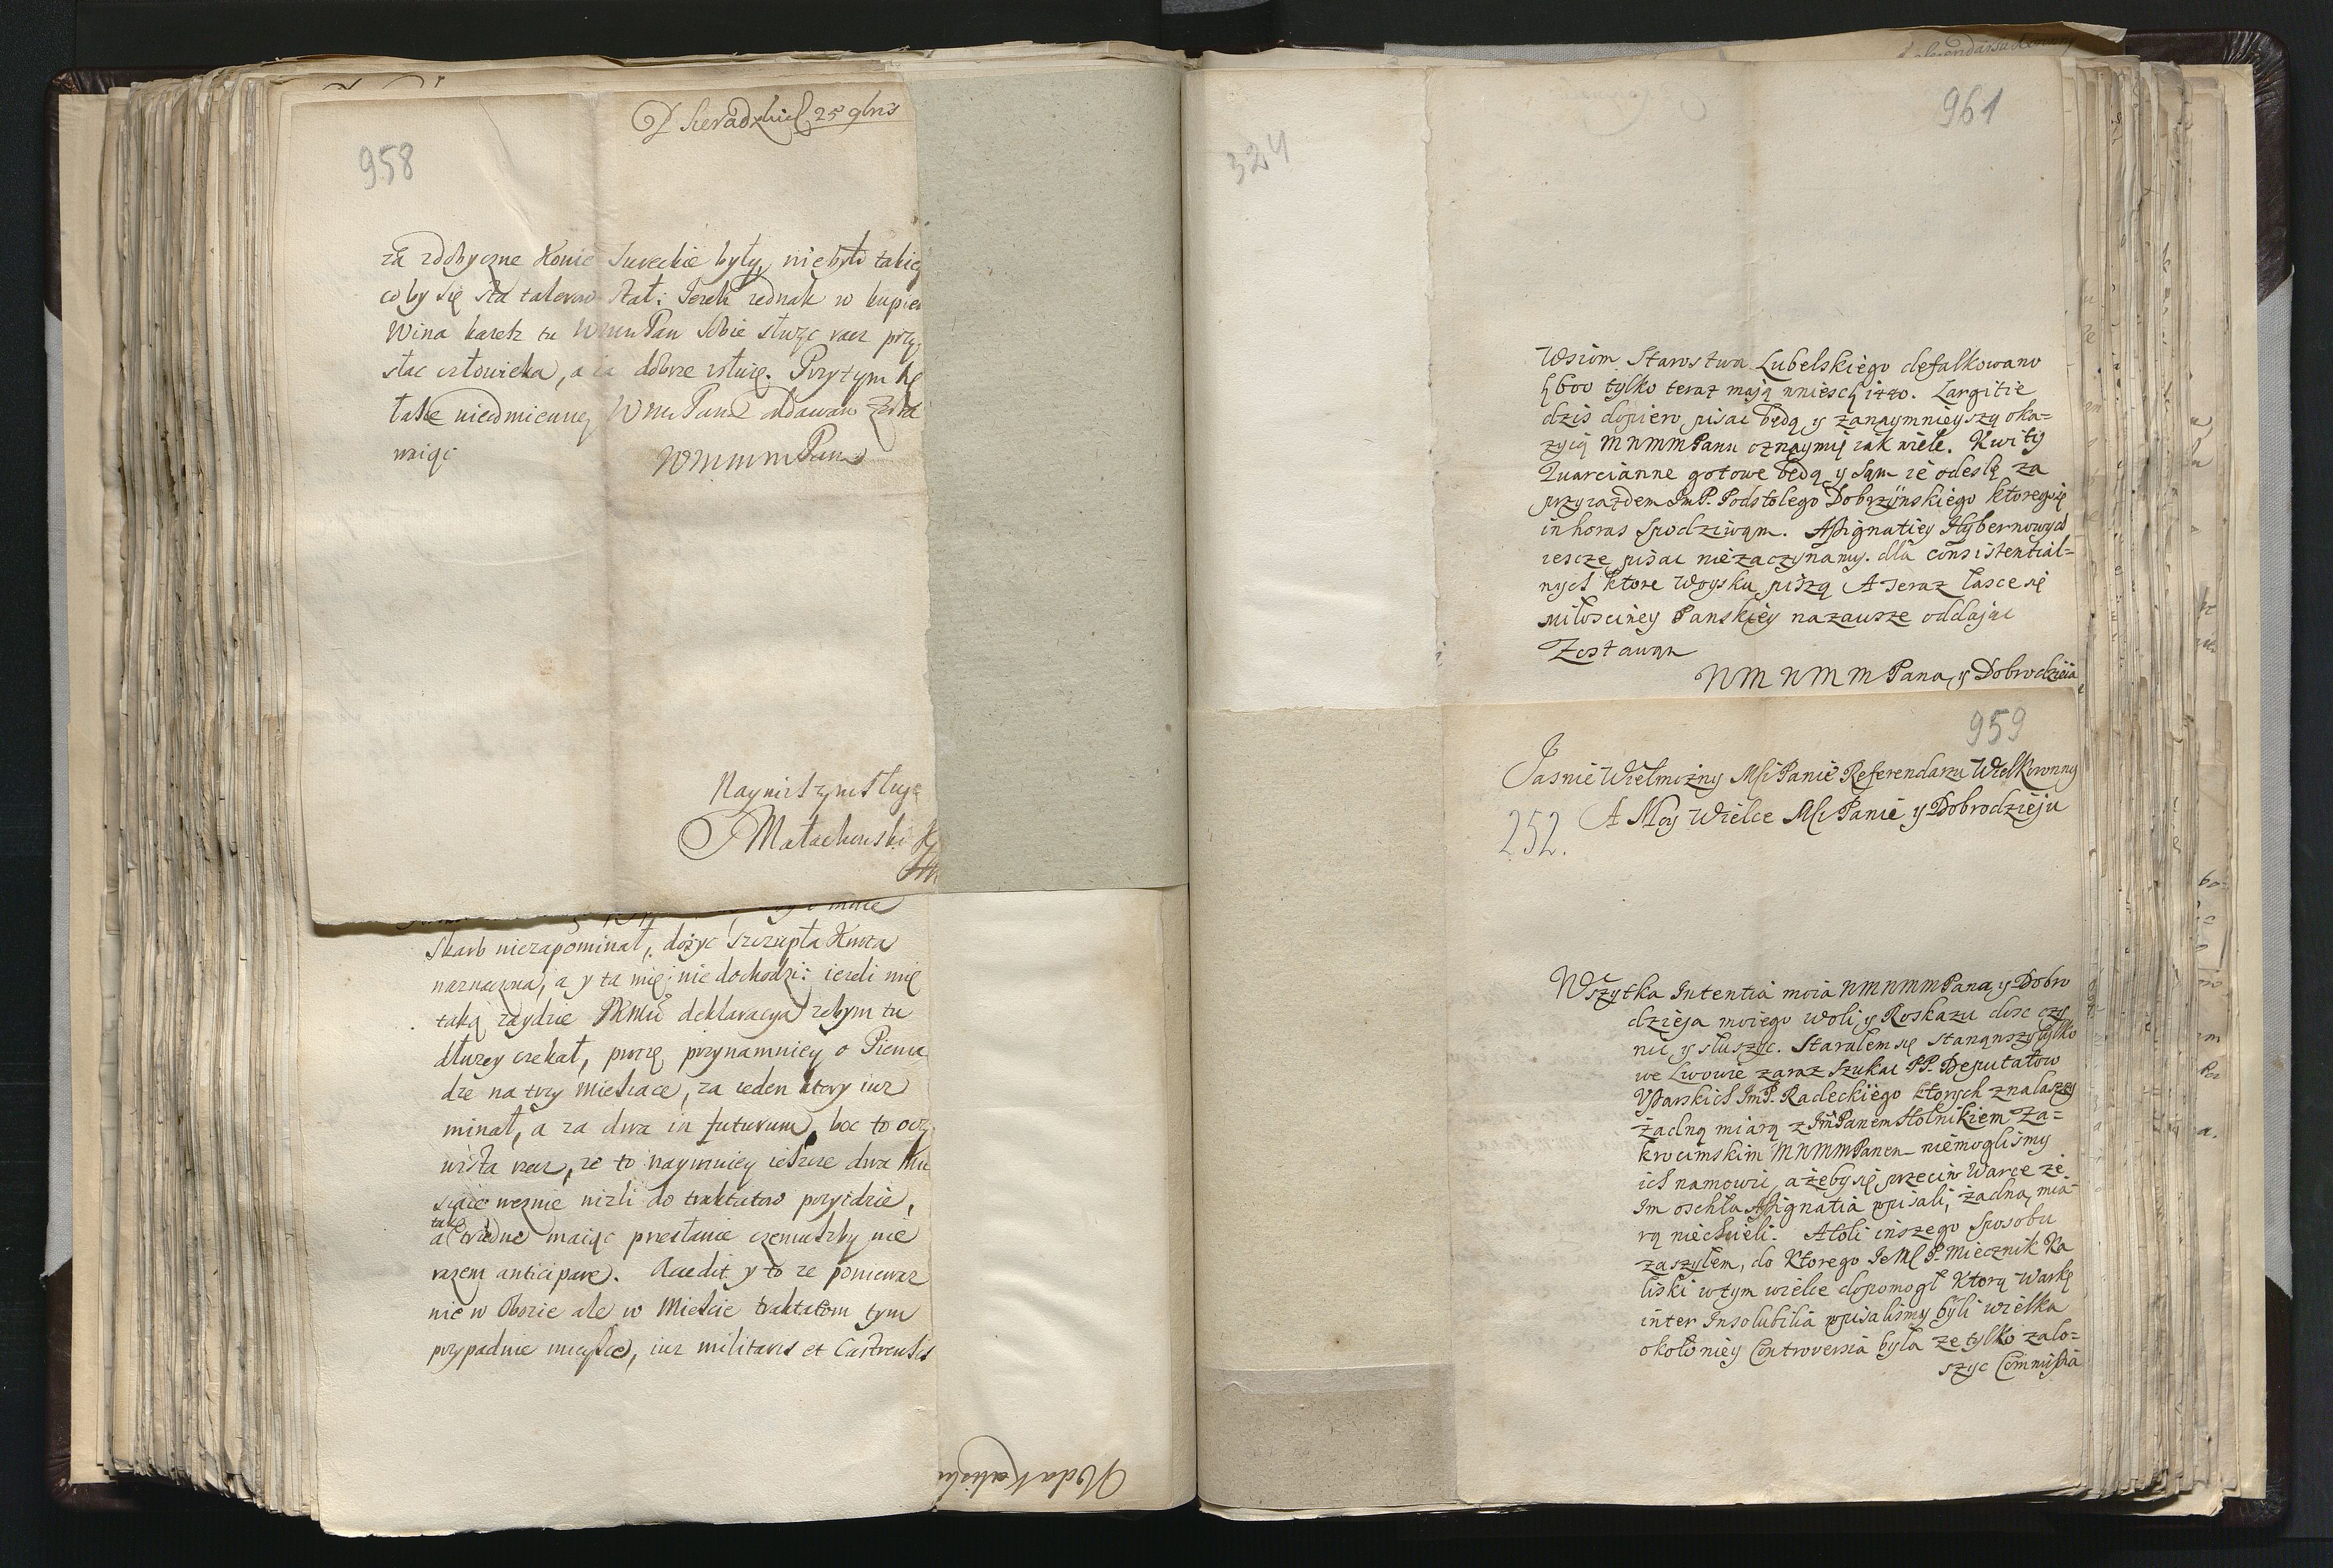 25 9bris
958
za zdobyczne Konie Tureckie były, niebyło takiey
coby się sta talerow stał: Jezeli iednak w kupien
Wina kazesz tu WMMPan sobie służyc racz przy,
słac człowieka, a ia dobrze usłużę. Przytym się
łasce nieodmienney WMMPana oddawam Zosta
waiąc
WMMMMPana
Nayniższym sługą
Małachowski
skarb niezapominał, dosyc szczupła Kwota
naznaczona, a y ta mię nie dochodzi: iezeli mię
taką zaydzie JKMci deklaracya zebym tu
dłuzey czekał, proszę przynamniey o Pienią
dze na trzy Miesiące, za ieden ktory iuz
minął, a za dwa in futurum, boc to oczy
wista rzecz, ze to naymniey ieszcze dwa Mie
siące wezmie nizli do traktatow przyidzie,
tak
a trudne maiąc przesłanie czemuszby nie
razem anticipare. Accedit y to ze poniewaz
nie w Obozie ale w Miescie traktatom tym
przypadnie mieysce, iuz militaris et Castrensis
324
961
Wzium Starostwa Lubelskiego defalkowano
600 tylko teraz mają wniesc 1440. Largitie
dzis dopiero pisac będą y zanaymnieyszą oka=
zyią MNMMPanu oznaymię iak wiele. Kwity
Quarcianne gotowe będą y sam ie odeslę za
przyiazdem ImP. Podstolego Dobrzynskiego ktoregosię
in horas spodziwąm. Assignatiey Hybernowych
iescze pisac niezaczynamy. dla consistential=
nych ktore Woysku piszą A teraz łasce się
miłosciwey Panskiey nazawsze oddajac
Zostawąm
NM NMM Pana, y Dobrodzieia
959
Jasnie Wielmożny Mći Panie Referendarzu Wielkoronny
252.
A Moy Wielce Mći Panie y Dobrodzieju
Wszytka Intentia moia NMNMMPana, y Dobro
dzieja moiego woli, y Roskazu dosc czy
nic, y słuszyc. Starałem się stanąwszy tylko
we Lwowie zaraz szukac PP. Deputatow
Ussarskich ImP. Radeckiego ktorych znalaszszy
żadną miarą z ImPanem Stolnikiem Za=
krocimskim MNMMPanem niemoglismy
ich namowic, ażeby się przeciw Warce że
Im oschła Assignatia wpisali, żadną mia
rą niechcieli. Atoli inszego sposobu
zaszyłem, do Ktorego JeMć P. Miecznik Ka
liski wtym wielce dopomogł Ktorą Warkę
inter Insolubilia wpisalismy byli wielka
około niey Controversia była ze tylko zało=
szyc Commissia